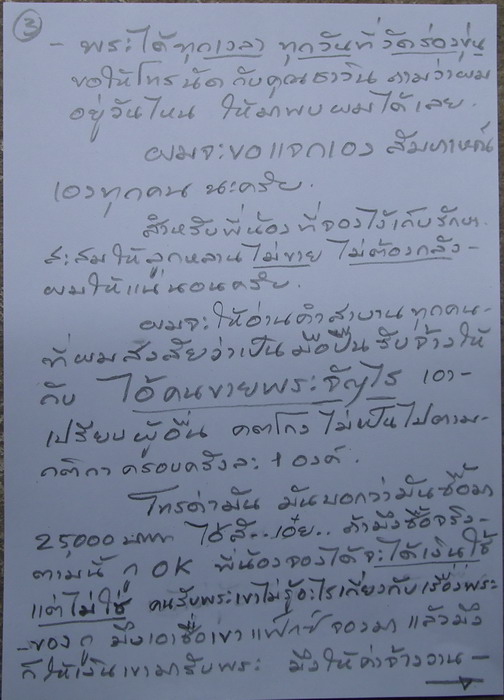 3
- พระได้ทุกเวลา ทุกวันที่วัดร่องขุ่น
ขอให้โทรนัดกับคุณธาวิน ถามว่าผม
อยู่วันไหน ให้มาพบผมได้เลย.
ผมจะขอแจกเอง สัมภาษณ์
เองทุกคน นะครับ.
สำหรับพี่น้องที่จองไว้เก็บรักษา
สะสมให้ลูกหลาน ไม่ขาย ไม่ต้องกลัว -
ผมให้แน่นอนครับ.
ผมจะให้อ่านคำสาบานทุกคน -
ที่ผมสงสัยว่าเป็นมือปืนรับจ้างให้
กับ ไอ้คนขายพระจัญไร เอา -
เปรียบผู้อื่น คดโกง ไม่เป็นไปตาม -
กติกาครอบครัวละ 1 องค์.
โทรด่ามัน มันบอกว่ามันซื้อมา
25,000 บาท ไอ้สั..เอ๋ย.. ถ้ามึงซื้อจริง -
ตามนี้ กู OK พี่น้องจองได้จะได้เงินใช้
แต่ไม่ใช่ คนรับพระเขาไม่รู้อะไรเกี่ยวกับเรื่องพระ
- ของกู มึงเอาชื่อเขาแฟกซ์จองมา แล้วมึง
ก็ให้เงินเขามารับพระ มึงให้ค่าจ้างวาน -